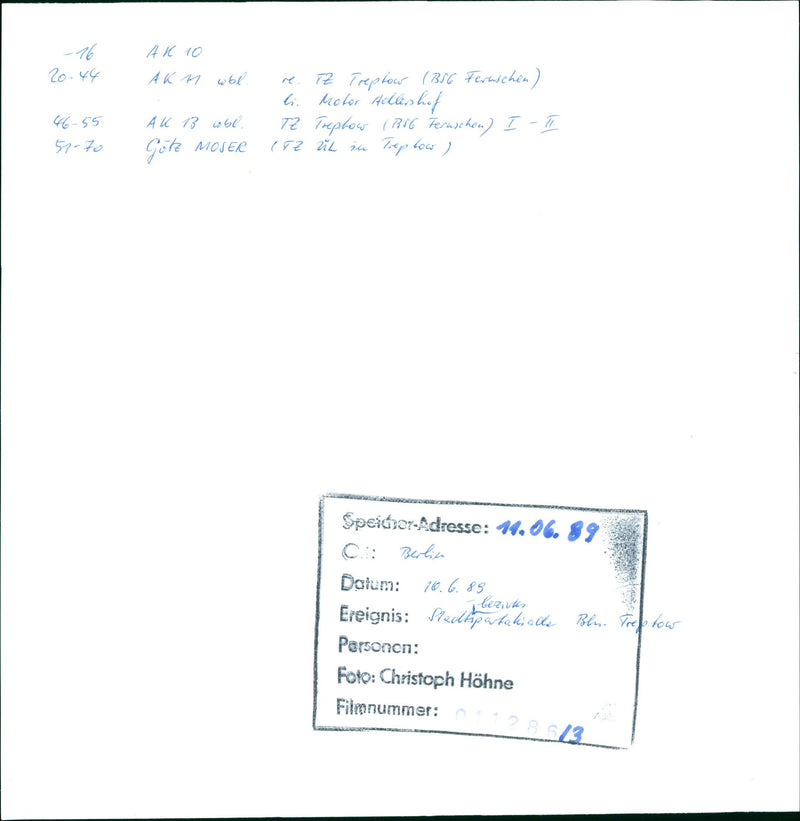 -16 AK 10
20-44 AK 11 wbl. re. TZ Treptow (BSG Fernsehen)
li. Motor Adlershof
46-55 AK 13 wbl. TZ Treptow (BSG Fernsehen) I - II
51-70 Götz MOSER (TZ ÜL in Treptow)
Speicher-Adresse: 11.06.89
Ort: Berlin
Datum: 10.6.89
bezirks
Ereignis: Stadtspartakiade Bln. Treptow
Personen:
Foto: Christoph Höhne
Filmnummer: 011286/3